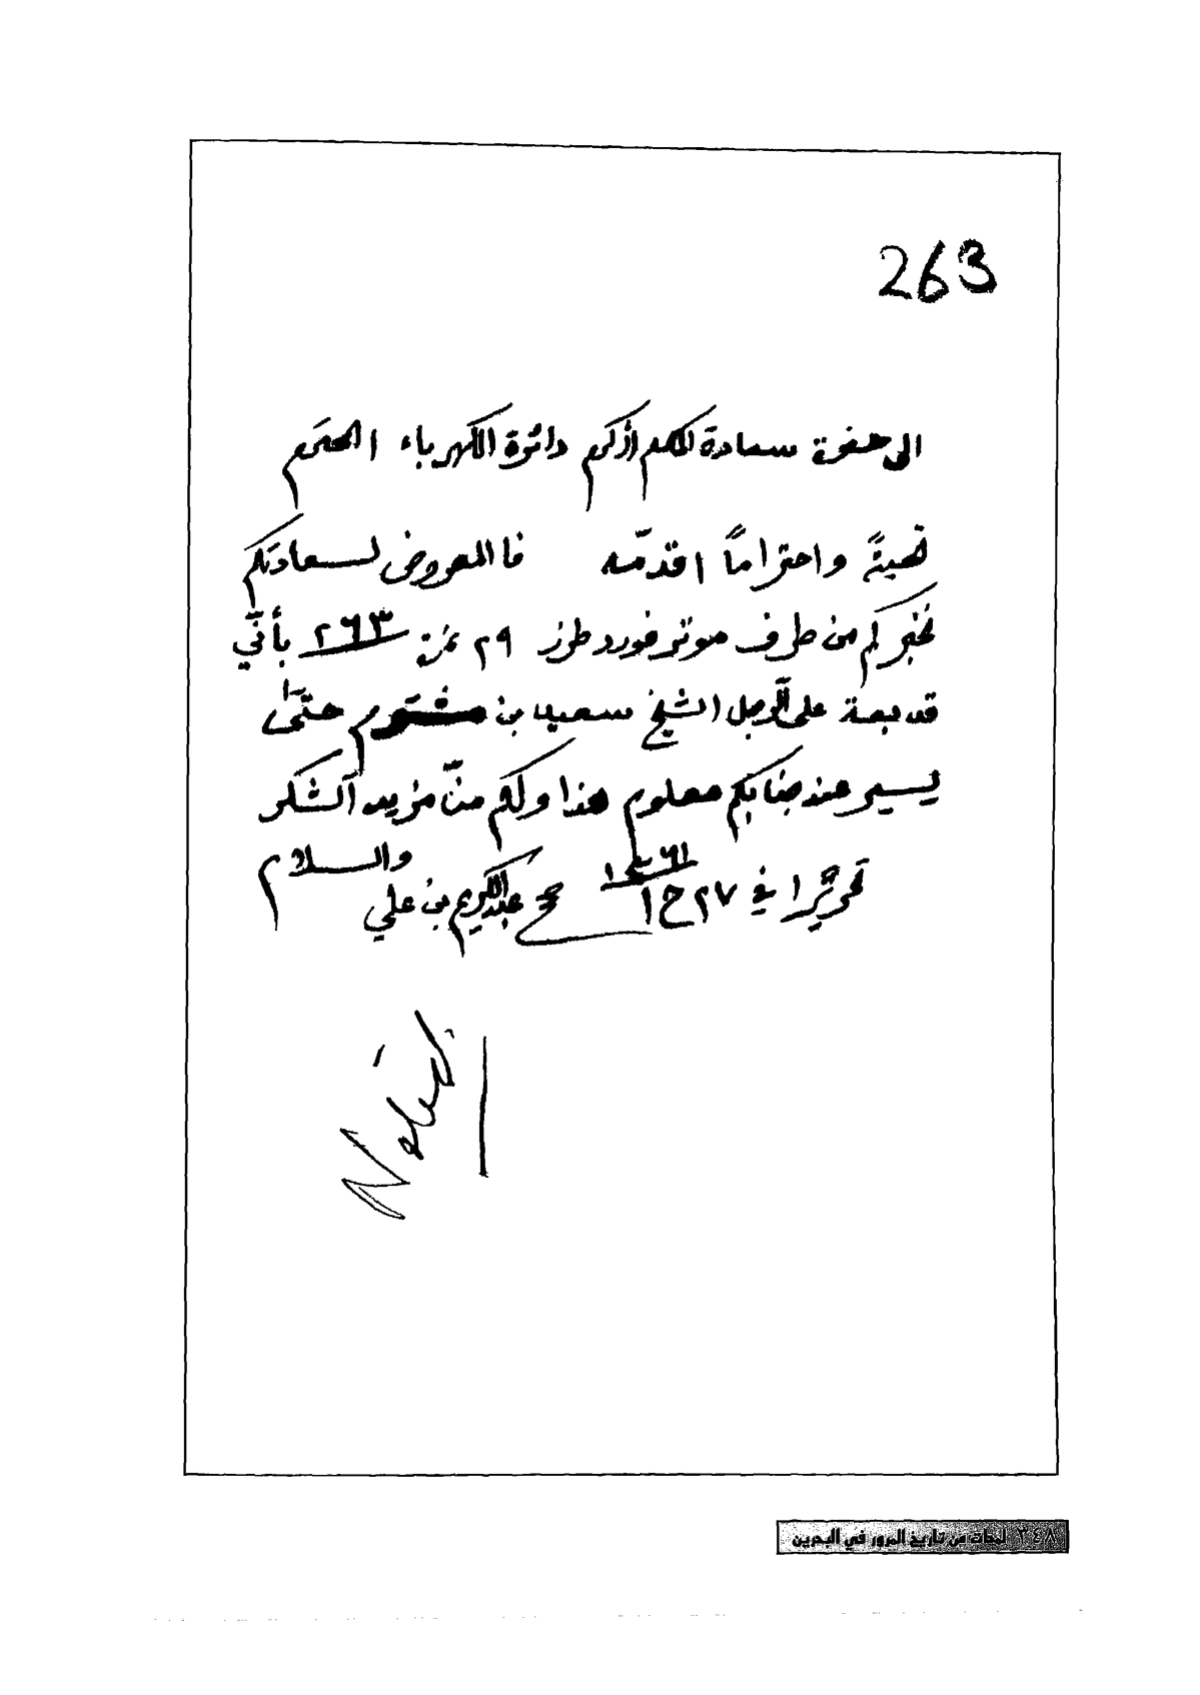 263
الى حضرة سعادة دائرة الكهرباء المحترم
تحيةً واحتراماً اقدمه فالمعروض لسعادتكم
نخبركم من طرف موتر فورد طرز ٢٩ نمرة ٢٦٣ بأنّي
قد بعة على الرجل الشيخ سعيد بن حتّى
يسير عند جنابكم معلوم هذا ولكم منّ مزيد الشكر
والسلام
تحريرًا في ٢٧ ج ١ ١٣٦١
عبدالكريم بن علي
٣٤٨ لمحات من تاريخ المرور في البحرين